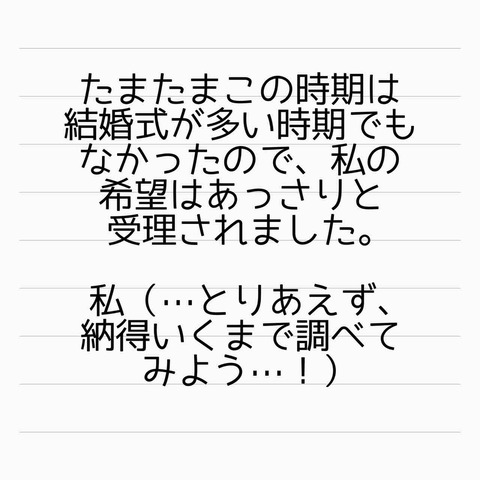 たまたまこの時期は
結婚式が多い時期でも
なかったので、私の
希望はあっさりと
受理されました。
私（…とりあえず、
納得いくまで調べて
みよう…！）